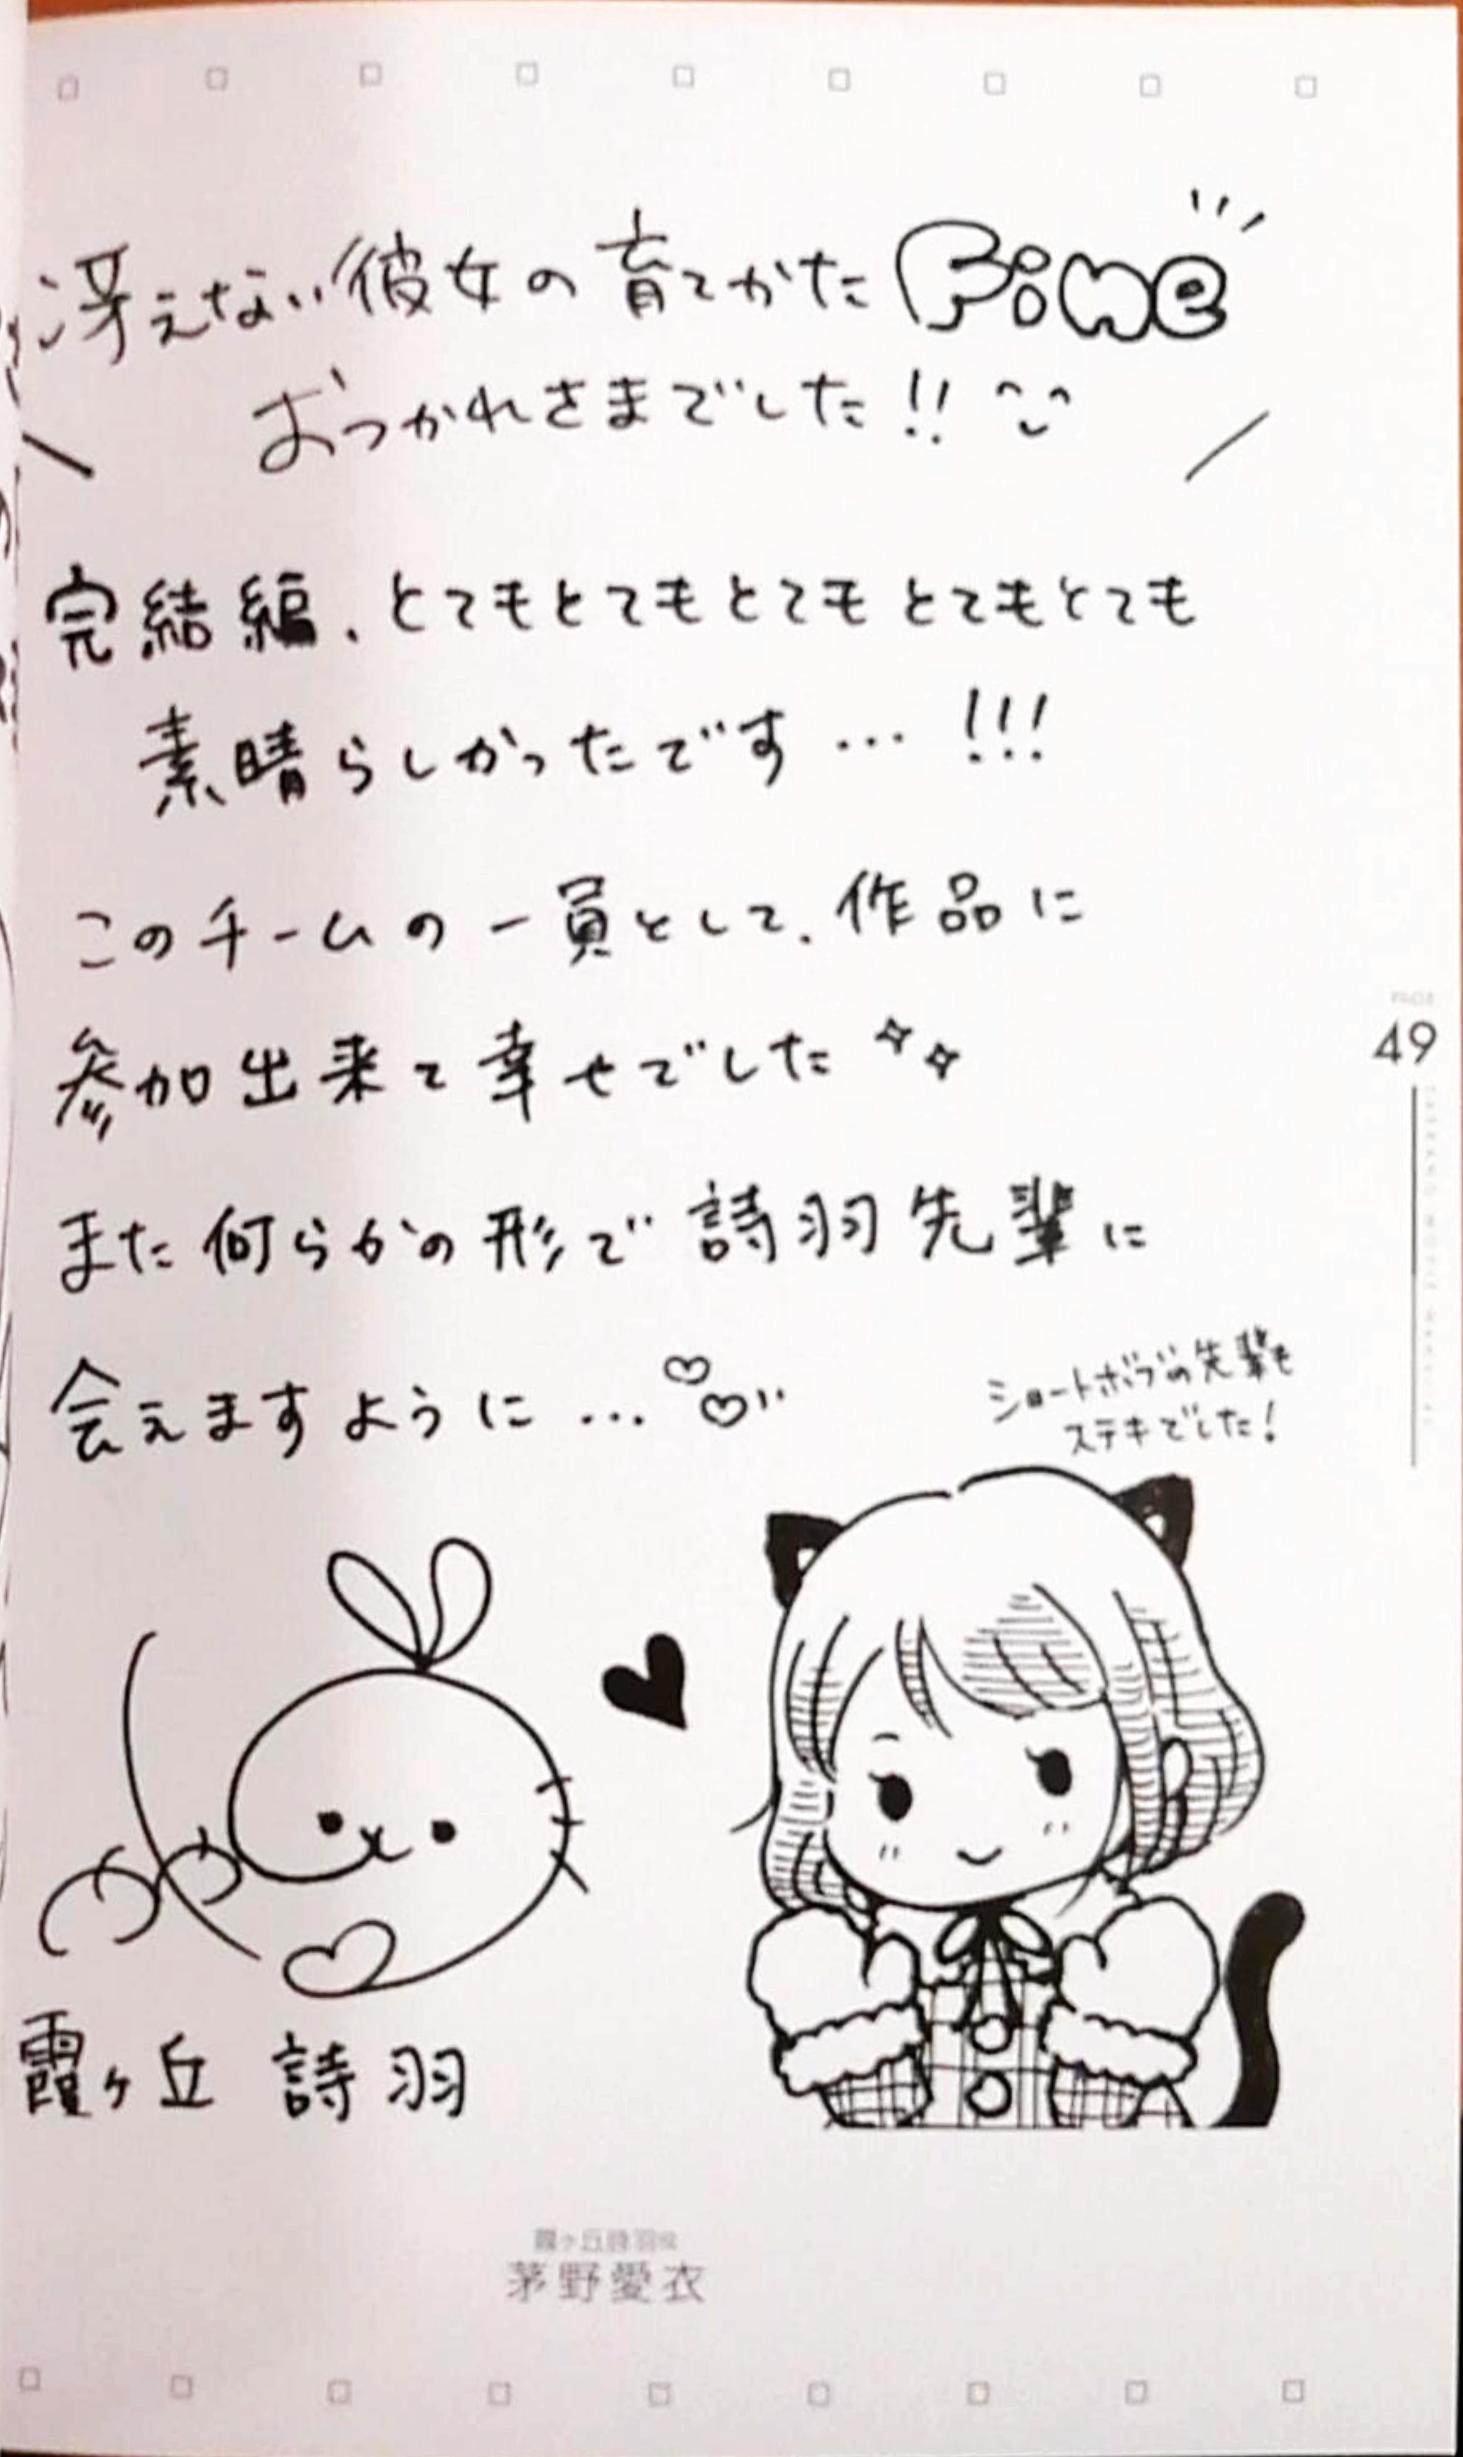 冴えない彼女の育てかた Fine
おつかれさまでした!!
完結編、とてもとてもとてもとてもとても
素晴らしかったです…!!!
このチームの一員として、作品に
参加出来て幸せでした
また何らかの形で詩羽先輩に
会えますように…
ショートボブの先輩も
ステキでした!
霞ヶ丘 詩羽
霞ヶ丘詩羽役
茅野愛衣
PAGE
49